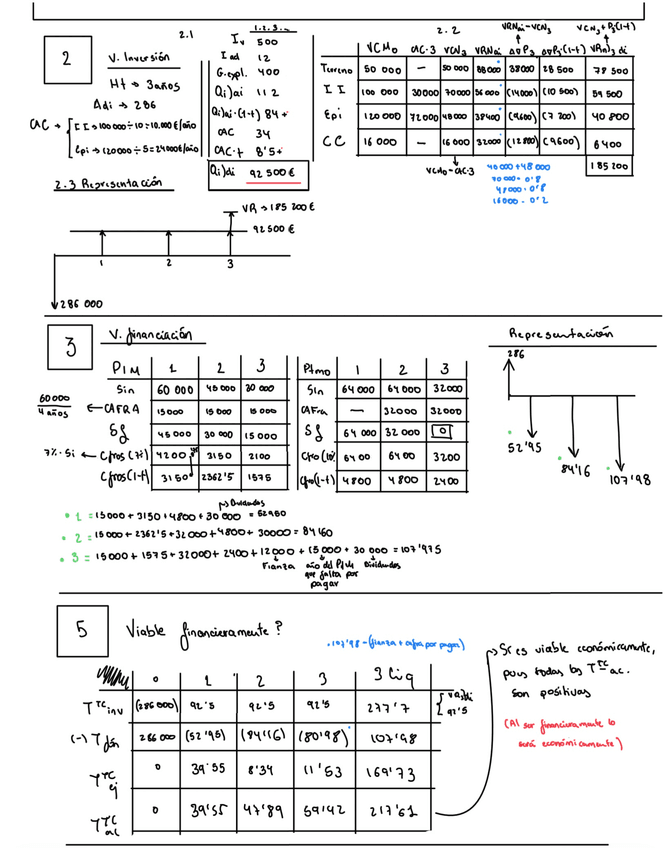 2
V. Inversión
Ht → 3 años
Adi → 286
CAC → I I → 100000 ÷ 10 = 10.000 €/año
Epi → 120000 ÷ 5 = 24000 €/año
2.1
1.2.3.
Iv 500
I ad 12
G.expl. 400
Qi)ai 112
Qi)ai·(1-t) 84 +
CAC 34
CAC·t 8'5+
Qi)di 92 500 €
2.2
VRNai - VCN3
VCN3 + P3(1-t)
VCM0 CAC·3 VCN3 VRNai ΔoP3 ΔoP3·(1-t) VRn)3 di
Terreno 50 000 — 50 000 88000 38000 28 500 78 500
I I 100 000 30000 70000 56000 (14000) (10 500) 59 500
Epi 120000 72000 48000 38400 (9600) (7 200) 40 800
CC 16 000 — 16 000 32000 (12800) (9600) 6400
185 200
VCM0 - CAC·3
40 000 + 48 000
70 000 · 0'8
48000 · 0'8
16000 · 0'2
2.3 Representación
VR → 185 200 €
92 500 €
1 2 3
286 000
3
V. financiación
PIM 1 2 3
Sin 60 000 45 000 30 000
CAFRA 15000 15 000 15 000
Sf 45 000 30 000 15 000
Cfros (7%) 4200 3150 2100
Cfros(1-t) 3150 2362'5 1575
60000
4 años
7% · Si
Ptmo 1 2 3
Sin 64 000 64 000 32000
CAFra — 32000 32000
Sf 64 000 32 000 0
Cfro (10%) 6400 6400 3200
Cfro(1-t) 4800 4 800 2400
Representación
286
52'95
84'16
107'98
Dividendos
1 = 15000 + 3150 + 4800 + 30 000 = 52950
2 = 15000 + 2362'5 + 32000 + 4800 + 30000 = 84160
3 = 15000 + 1575 + 32000 + 2400 + 12000 + 15000 + 30 000 = 107'975
Fianza año del PIM Dividendos
que falta por
pagar
5
Viable financieramente?
107'98 - (fianza + cafra por pagar)
0 1 2 3 3 Liq
T TC inv (286 000) 92'5 92'5 92'5 277'7
VR)3di
92'5
(-) T fón 286 000 (52'95) (84'16) (80'98) 107'98
T TC ej 0 39'55 8'34 11'53 169'73
T TC ac 0 39'55 47'89 59'42 217'61
Sí es viable económicamente,
pues todas las T TC ac.
son positivas
(Al ser financieramente lo
será económicamente)